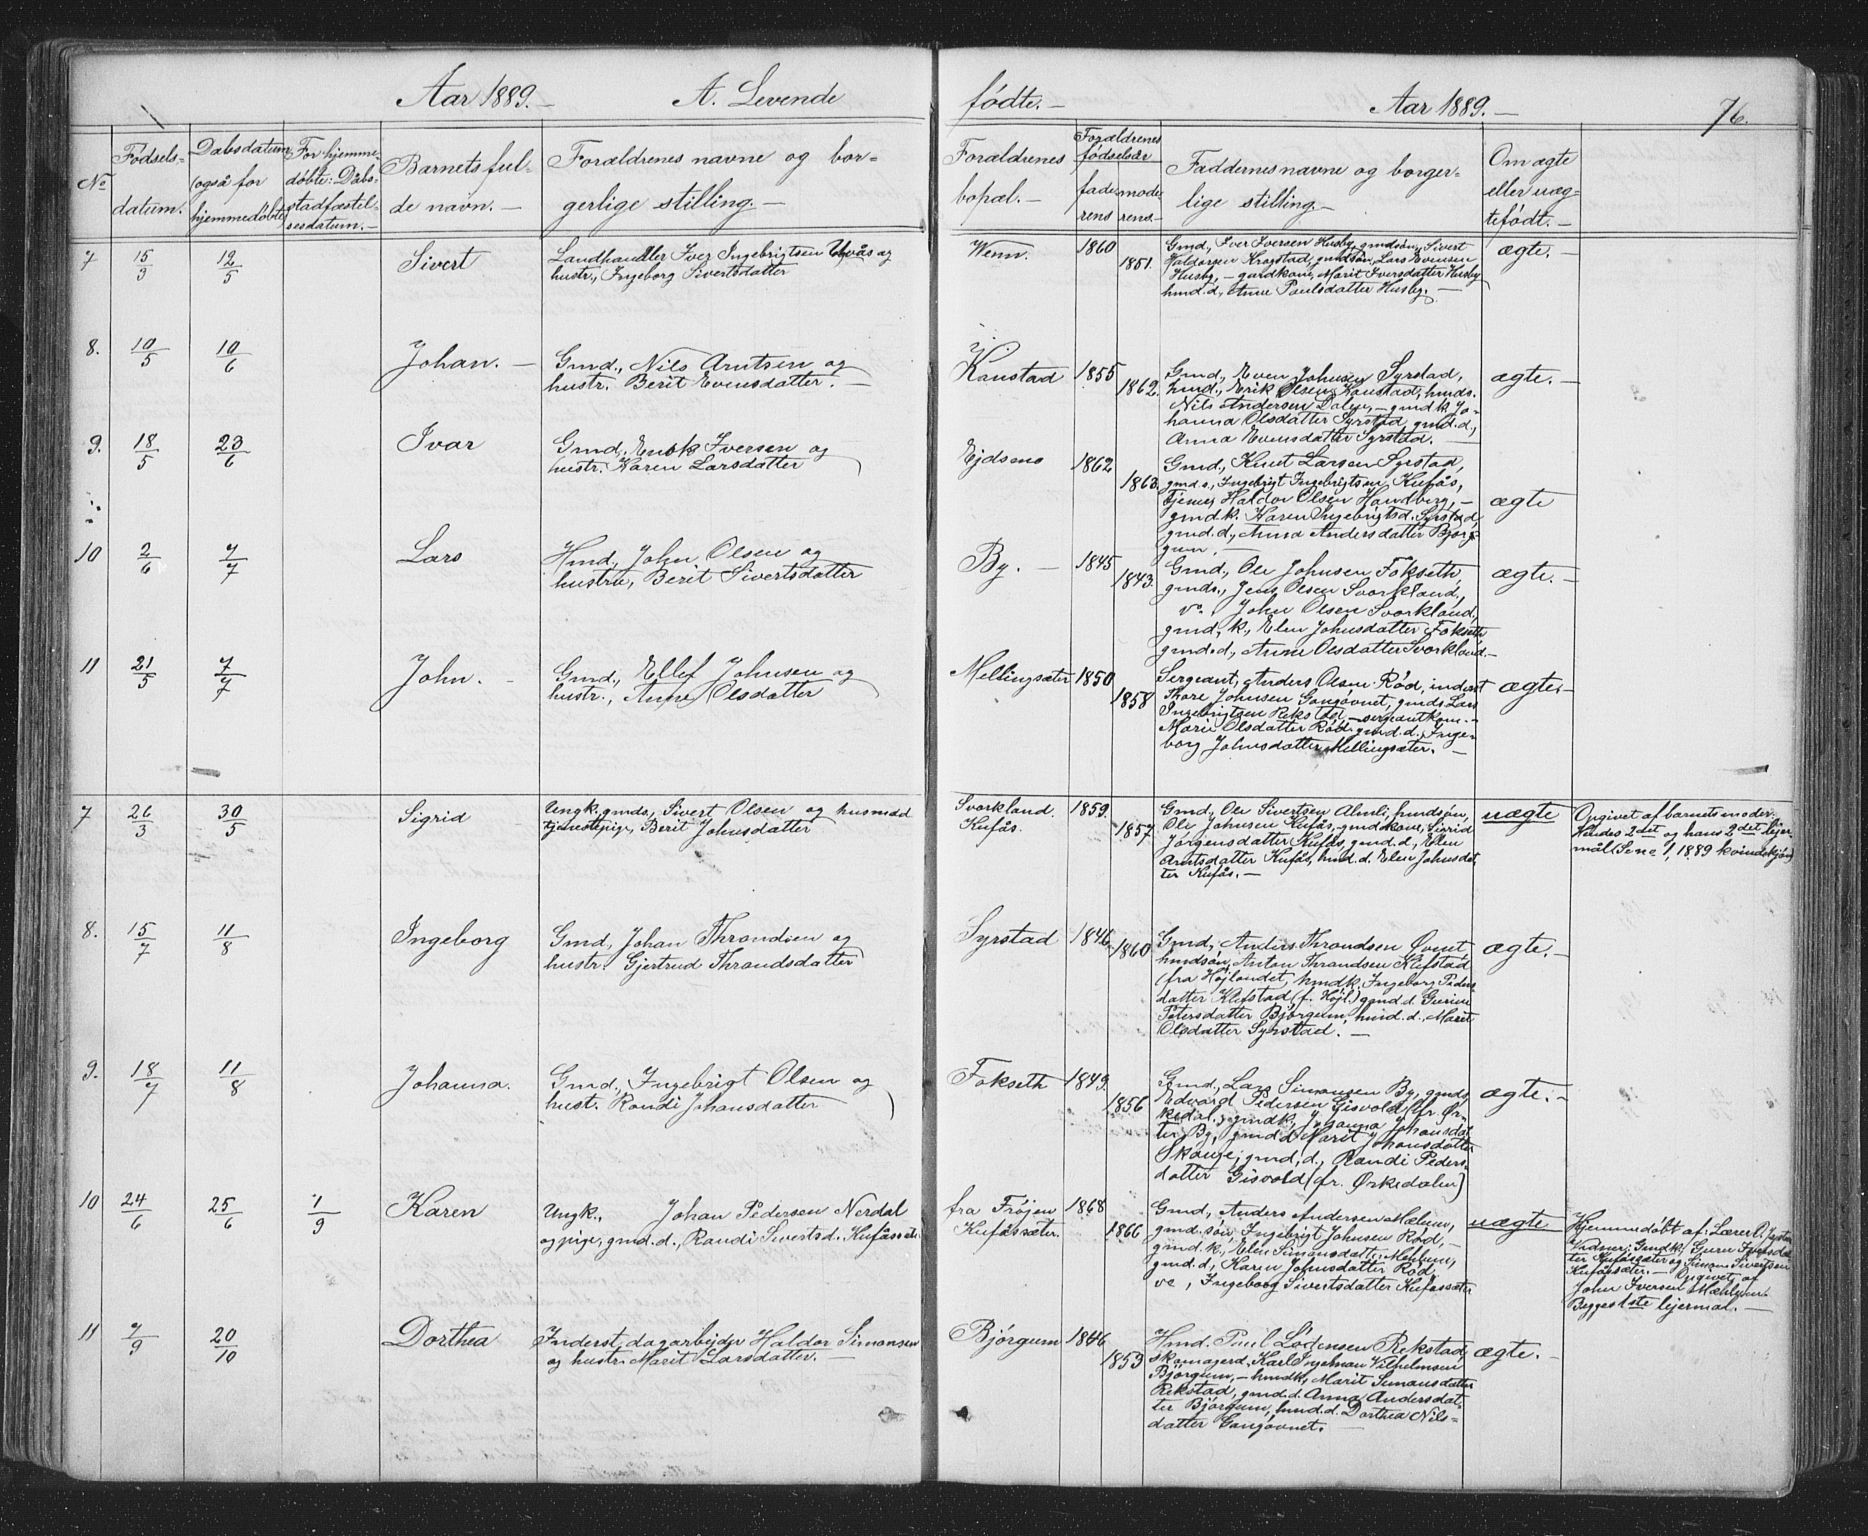 Aar 1889. — A. Levende
fødte. — Aar 1889. — 76.
No
Fødsels-
datum.
Daabsdatum
(også for
hjemmedøbte)
For hjemme-
døbte: Dåbs-
stadfæstel-
sesdatum. —
Barnets ful-
de navn. —
Forældrenes navne og bor-
gerlige stilling. —
Forældrenes
bopæl. —
Forældrenes
fødselsår
fade-
rens
mode-
rens. —
Faddernes navne og borger-
lige stilling. —
Om ægte
eller uæg-
tefødt. —
7 15/3 12/5 Sivert
Landhandler Iver Ingebrigtsen og
hustr., Ingeborg Sivertsdatter
Wenn. 1860 1851.
Gmd., Iver Iversen Husby, gmdsøn, Sivert
Haldorsen Krogstad, gmdsøn, Lars Evensen
Husby, — gardkone, Marit Iversdatter Husby
hmd.d., Anne Paulsdatter Husby. —
ægte. —
8. 10/5 10/6 Johan. —
Gmd., Nils Arntsen og
hustr. Berit Evensdatter. —
Kanstad 1855 1862.
Gmd., Even Johnsen Syrstad,
hmd., Erik Olsen Kanstad, hmds.
Nils Andersen Dalye, — gmd k. Jo-
hanna Olsdatter Syrstad, gmd.d.,
Anna Evensdatter Syrstad. —
ægte. —
9. 18/5 23/6 Ivar
Gmd., Enok Iversen og
hustr. Karen Larsdatter
Ejdsmo 1862 1863.
Gmd., Knut Larsen Syrstad,
gmd.s., Ingebrigt Ingebrigtsen Kufås,
Tjener, Haldor Olsen Handberg, —
gmd.k. Karen Ingebrigtsd. Syrstad,
gmd.d., Anna Andersdatter Bjørg-
gum. —
ægte
10 2/6 7/7 Lars
Hmd., John Olsen og
hustru, Berit Sivertsdatter
By. — 1845 1843.
Gmd., Ole Johnsen Fokseth,
gmds., Jens Olsen Svorkland,
vo. John Olsen Svorkland,
gmd. k., Elen Johnsdatter Fokseth
gmd.d., Anne Olsdatter Svorkland. —
ægte. —
11 21/5 7/7 John. —
Gmd., Ellef Johnsen og
hustr., Anne Olsdatter
Mellingsæter 1850 1858
Sergeant, Anders Olsen Rød, inderst
Thore Johnsen Gangøvnet, gmds Lars
Ingebrigtsen Rekstad, — sergeantkone. —
Marie Olsdatter Rød. gmd.d., Inge-
borg Johnsdatter Mellingsæter. —
ægte. —
7 26/3 30/5 Sigrid
Ungk., gmds., Sivert Olsen og husmdd
tjenestepige, Berit Johnsdatter
Svorkland.
Kufås. 1859. 1857.
Gmd., Ole Sivertsen Almli, hmdsøn,
Ole Johnsen Kufås, gmdskone, Sigrid
Jørgensdatter Kufås, gmd.d., Elen
Arntsdatter Kufås, hmd.d. Elen Johnsdat-
ter Kufås. —
uægte
Opgivet af barnets moder.
Hendes 2det og hans 2det lejer-
mål (Se no 1, 1889 kvindekjøn)
8. 15/7 11/8 Ingeborg
Gmd., Johan Throndsen og
hustr. Gjertrud Throndsdatter
Syrstad 1846. 1860
Gmd., Anders Throndsen Øvret,
hmdsøn, Anton Thrandsen Klefstad
(fra Højlandet, hmdk., Ingeborg Peders-
datter Klefstad (f. Højl.) gmd.d. Gurine
Petersdatter Bjørgum, hmd. d., Marit
Olsdatter Syrstad. —
ægte. —
9. 18/7 11/8 Johanna.
Gmd., Ingebrigt Olsen og
hust. Randi Johansdatter
Fokseth 1849. 1856
Gmd., Lars Simonsen By, gmds.
Edvard Pedersen Gisvold (fr. Ør-
kedal., gmdk., Johanna Johansdat-
ter By, gmd.d. Marit Johansdatter
Skauge, gmd,d., Randi Peders-
datter Gisvold (fr. Ørkedalen)
ægte. —
10 24/6 25/6 1/9 Karen
Ungk., Johan Pedersen Nerdal
og pige, gmd.d., Randi Sivertsd. Kufåssæt.
fra Frøjen
Kufåssæter. 1868 1866
Gmd., Anders Andersen Mælum,
gmd.søn, Ingebrigt Johnsen Rød, —
gmd.k., Elen Simonsdatt. Mehlum,
gmd.d., Karen Johnsdatter Rød,
vo, Ingeborg Sivertsdatter Kufåssæter
uægte
Hjemmedøbt af: Lærer
Vidner: Gmdk. Guru Iversdat-
ter Kufåssæter og Simon Sivertsen
Kufåssæter. — Opgivet af
John Iversen Mæhlum.
Begges 1ste lejermål. —
11 7/9 20/10 Dorthea
Inderst, dagarbejder Haldor Simonsen
og hustr. Marit Larsdatter. —
Bjørgum 1846 1853
Hmd. Paul Lødensen Rekstad,
skomagerd. Karl Ingelman Vilhelmsen
Bjørgum, — hmdk., Marit Simonsdatter
Rekstad, gmd.d. Anna Andersdat-
ter Bjørgum, hmd.d. Dorthea Nils-
datter Gangøvnet. —
ægte. —